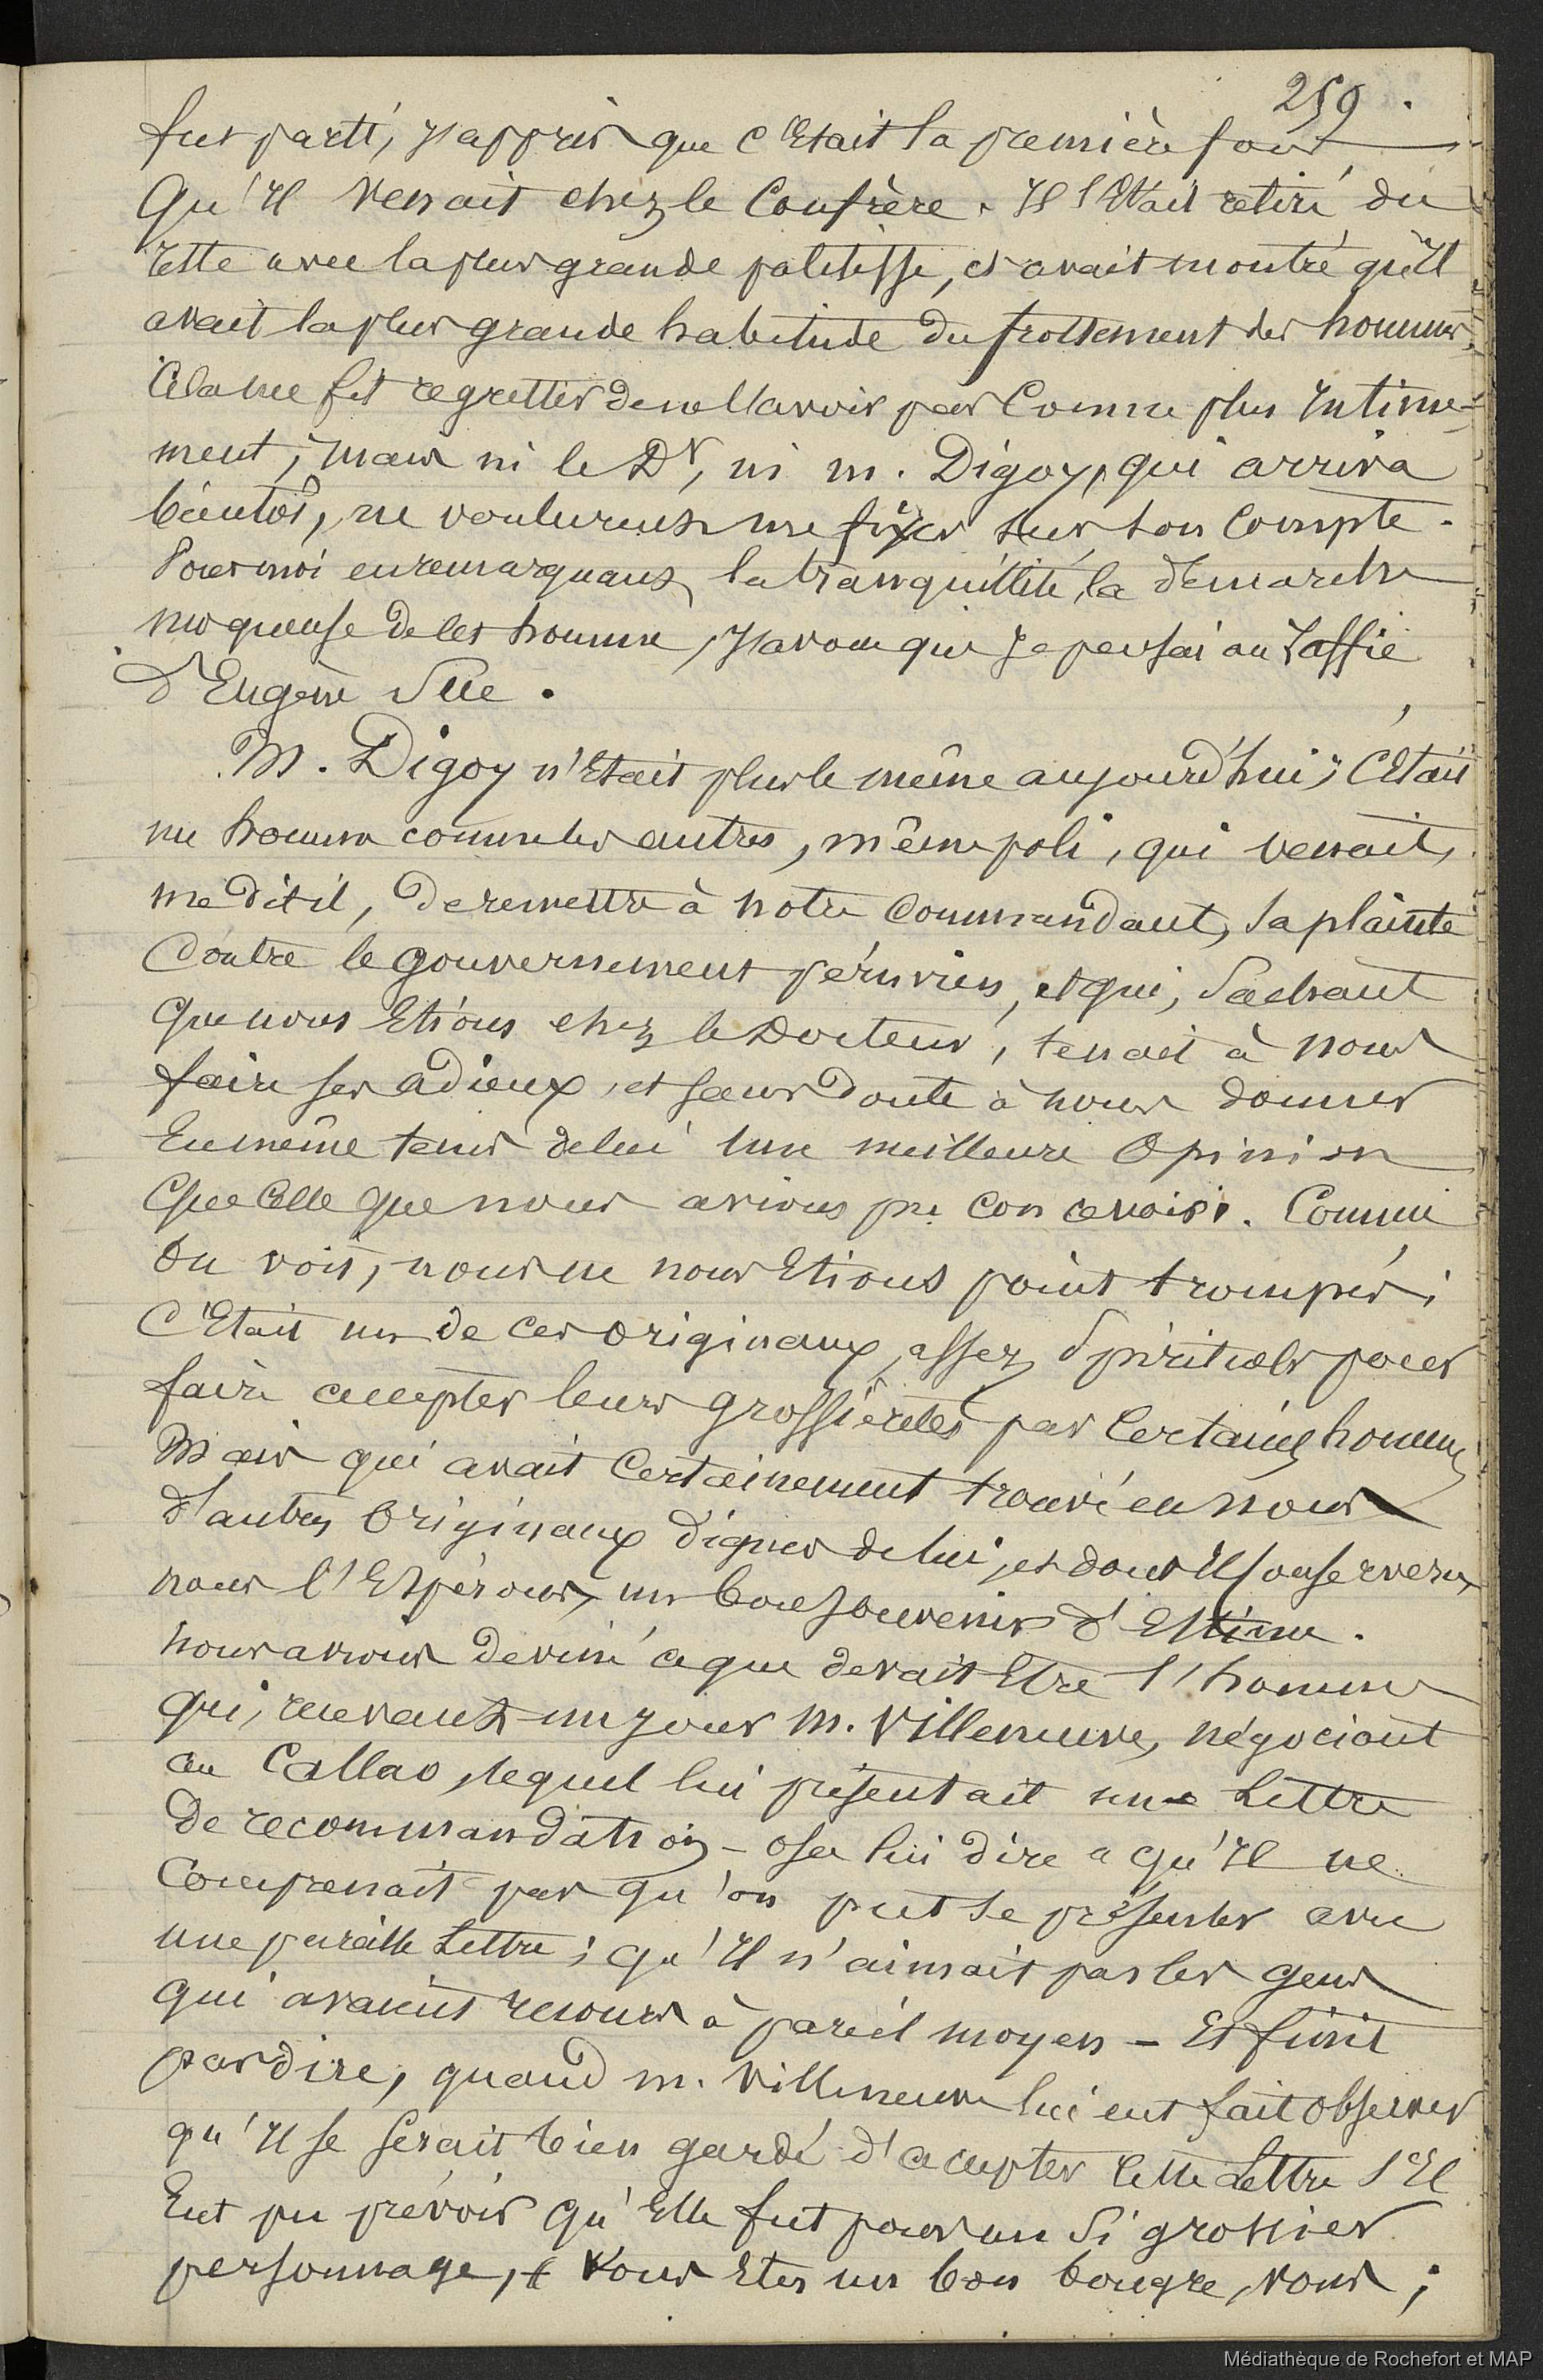 259.
fut parti, j'appris que c'Etait la première fois
Qu'Il Venait chez le Confrère. Il s'Etait retiré du
reste avec la plus grande politesse, et avait montré qu'Il
avait la plus grande habitude du frottement des hommes.
Cela me fit regretter de ne l'avoir pas Connu plus Intime-
ment; mais ni le Dr, ni m. Digoy, qui arriva
bientôt, ne voulurent me fixer sur son Compte.
Pour moi en remarquant la tranquillité, la démarche
moqueuse de cet homme, j'avoue que je pensai au Jaffie
d'Eugène Sue.
M. Digoy n'Etait plus le même aujourd'hui; C'Etait
un homme comme les autres, même poli, qui venait,
me dit-il, de remettre à notre Commandant, sa plainte
Contre le gouvernement péruvien, et qui, Sachant
que nous Etions chez le Docteur, tenait à nous
faire ses adieux, et sans Doute à nous donner
En même tems de lui une meilleure Opinion
Que Celle que nous avions pu concevoir. Comme
On voit, nous ne nous Etions point trompés;
C'Etait un de ces originaux, assez Spirituels pour
faire accepter leurs grossièretés par Certains hommes
Mais qui avait Certainement trouvé en nous
d'autres Originaux dignes de lui, et dont Il conservera,
nous l'Espérons, un bon souvenir d'Estime.
nous avions deviné ce que devait Etre l'homme
qui, recevant un jour M. Villeneuve, négociant
au Callao, lequel lui présentait une Lettre
De recommandation - osa lui dire « qu'Il ne
Comprenait pas qu'on put se présenter avec
une pareille Lettre; qu'Il n'aimait pas les gens
qui avaient recours à pareil moyen - Et finit
par dire, quand m. Villeneuve lui eut fait observer
qu'Il se serait bien gardé d'accepter cette Lettre s'Il
Eut pu prévoir qu'Elle fut pour un Si grossier
personnage, « Vous Etes un bon bougre, vous;
Médiathèque de Rochefort et MAP